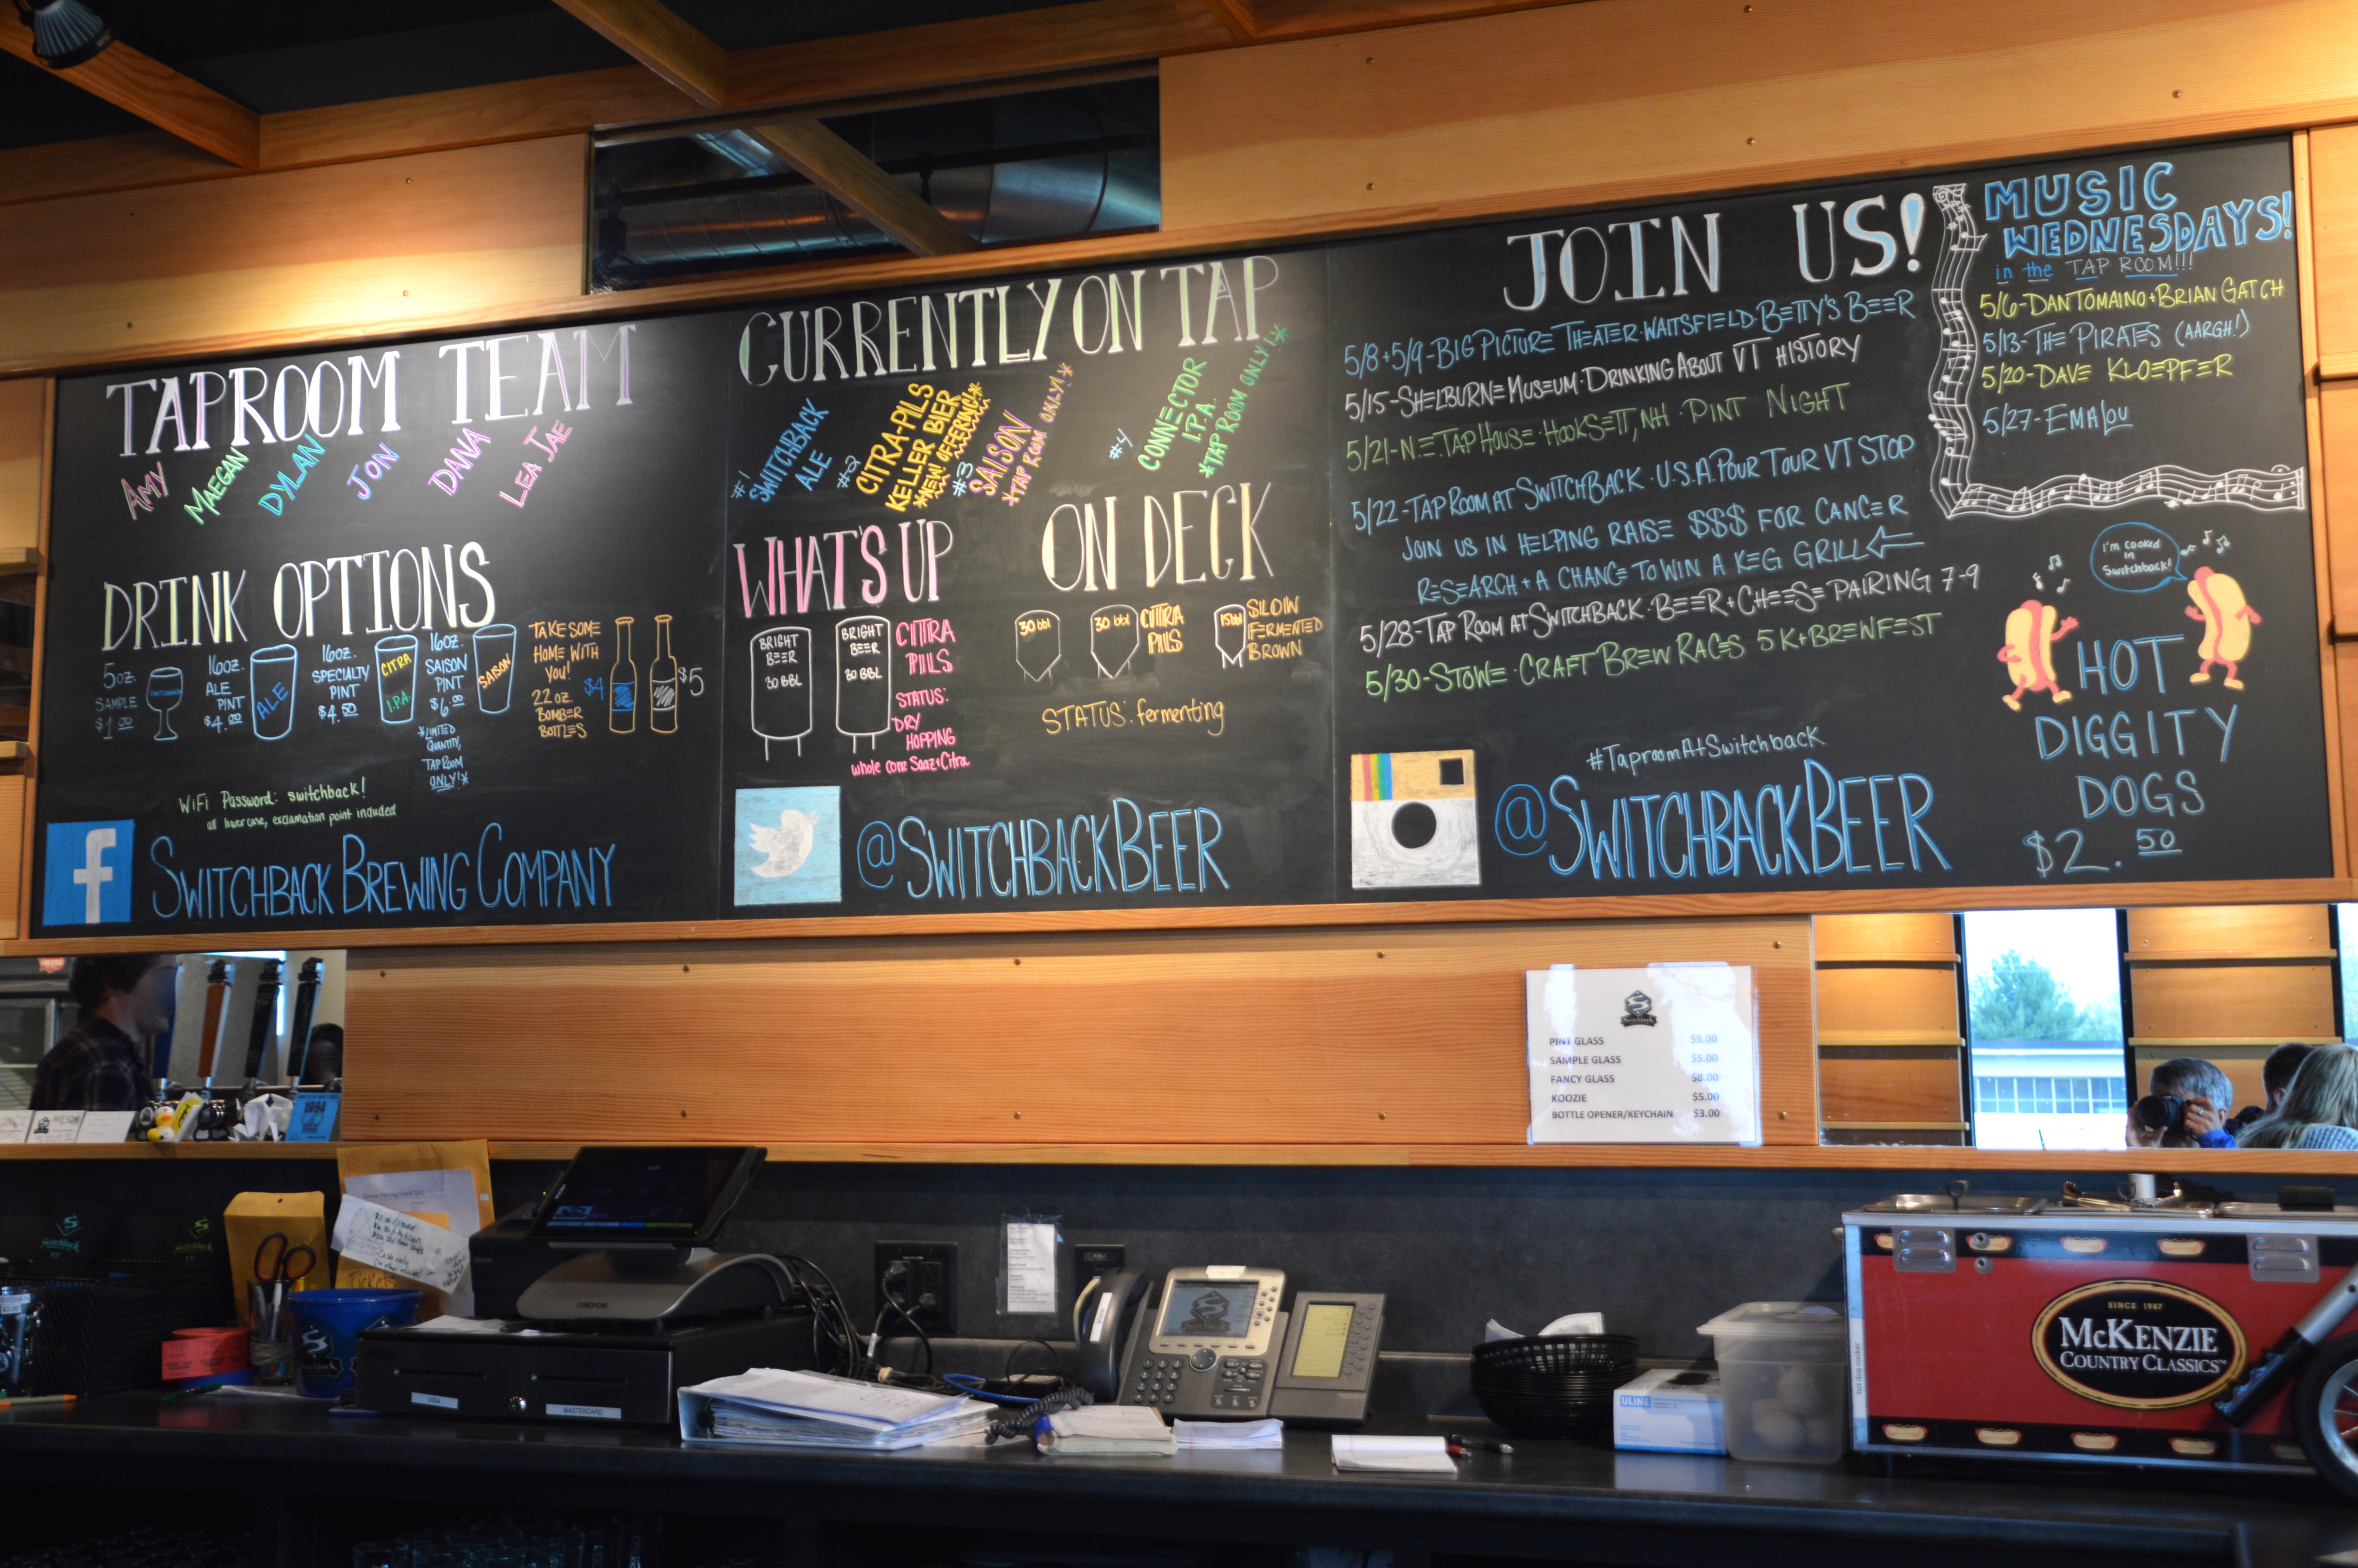 TAPROOM TEAM
AMY
MAEGAN
DYLAN
JON
DANA
LEA JAE
DRINK OPTIONS
5oz.
SAMPLE
$1.00
16oz.
ALE
PINT
$4.00
ALE
16oz.
SPECIALTY
PINT
$4.50
CITRA
I.P.A.
16oz.
SAISON
PINT
$6.00
*LIMITED
QUANTITY,
TAP ROOM
ONLY!*
SAISON
TAKE SOME
HOME WITH
YOU!
22oz.
BOMBER
BOTTLES
$4
$5
WiFi Password: switchback!
all lowercase, exclamation point included
f
SWITCHBACK BREWING COMPANY
CURRENTLY ON TAP
#1
SWITCHBACK
ALE
#2
CITRA-PILS
KELLER BIER
*NEW! OFFERING!*
#3
SAISON
*TAP ROOM ONLY!*
#4
CONNECTOR
I.P.A.
*TAP ROOM ONLY!*
WHAT'S UP
BRIGHT
BEER
30 BBL
BRIGHT
BEER
30 BBL
CITRA
PILS
STATUS:
DRY
HOPPING
whole cone Saaz+Citra
ON DECK
30 bbl
30 bbl
CITRA
PILS
15bbl
SLOW
FERMENTED
BROWN
STATUS: fermenting
@SWITCHBACKBEER
JOIN US!
5/8+5/9-BIG PICTURE THEATER·WAITSFIELD·BETTY'S BEER
5/15-SHELBURNE MUSEUM·DRINKING ABOUT VT HISTORY
5/21-N.E. TAP HOUSE·HOOKSETT, NH·PINT NIGHT
5/22-TAP ROOM AT SWITCHBACK·U.S.A. POUR TOUR VT STOP
JOIN US IN HELPING RAISE $$$ FOR CANCER
RESEARCH + A CHANCE TO WIN A KEG GRILL
5/28-TAP ROOM AT SWITCHBACK·BEER+CHEESE PAIRING 7-9
5/30-STOWE·CRAFT BREW RACES 5K+BREWFEST
#TaproomAtSwitchback
@SWITCHBACKBEER
MUSIC
WEDNESDAYS!
in the TAP ROOM!!!
5/6-DAN TOMAINO+BRIAN GATCH
5/13-THE PIRATES (AARGH!)
5/20-DAVE KLOEPFER
5/27-EMALOU
I'm cooked
in
Switchback!
HOT
DIGGITY
DOGS
$2.50
Switchback
PINT GLASS $5.00
SAMPLE GLASS $5.00
FANCY GLASS $8.00
KOOZIE $5.00
BOTTLE OPENER/KEYCHAIN $3.00
1994
Switchback
VT
Switchback
micros
VISA
MASTERCARD
ULINE
hot dog cooker
SINCE 1907
MCKENZIE
COUNTRY CLASSICS™